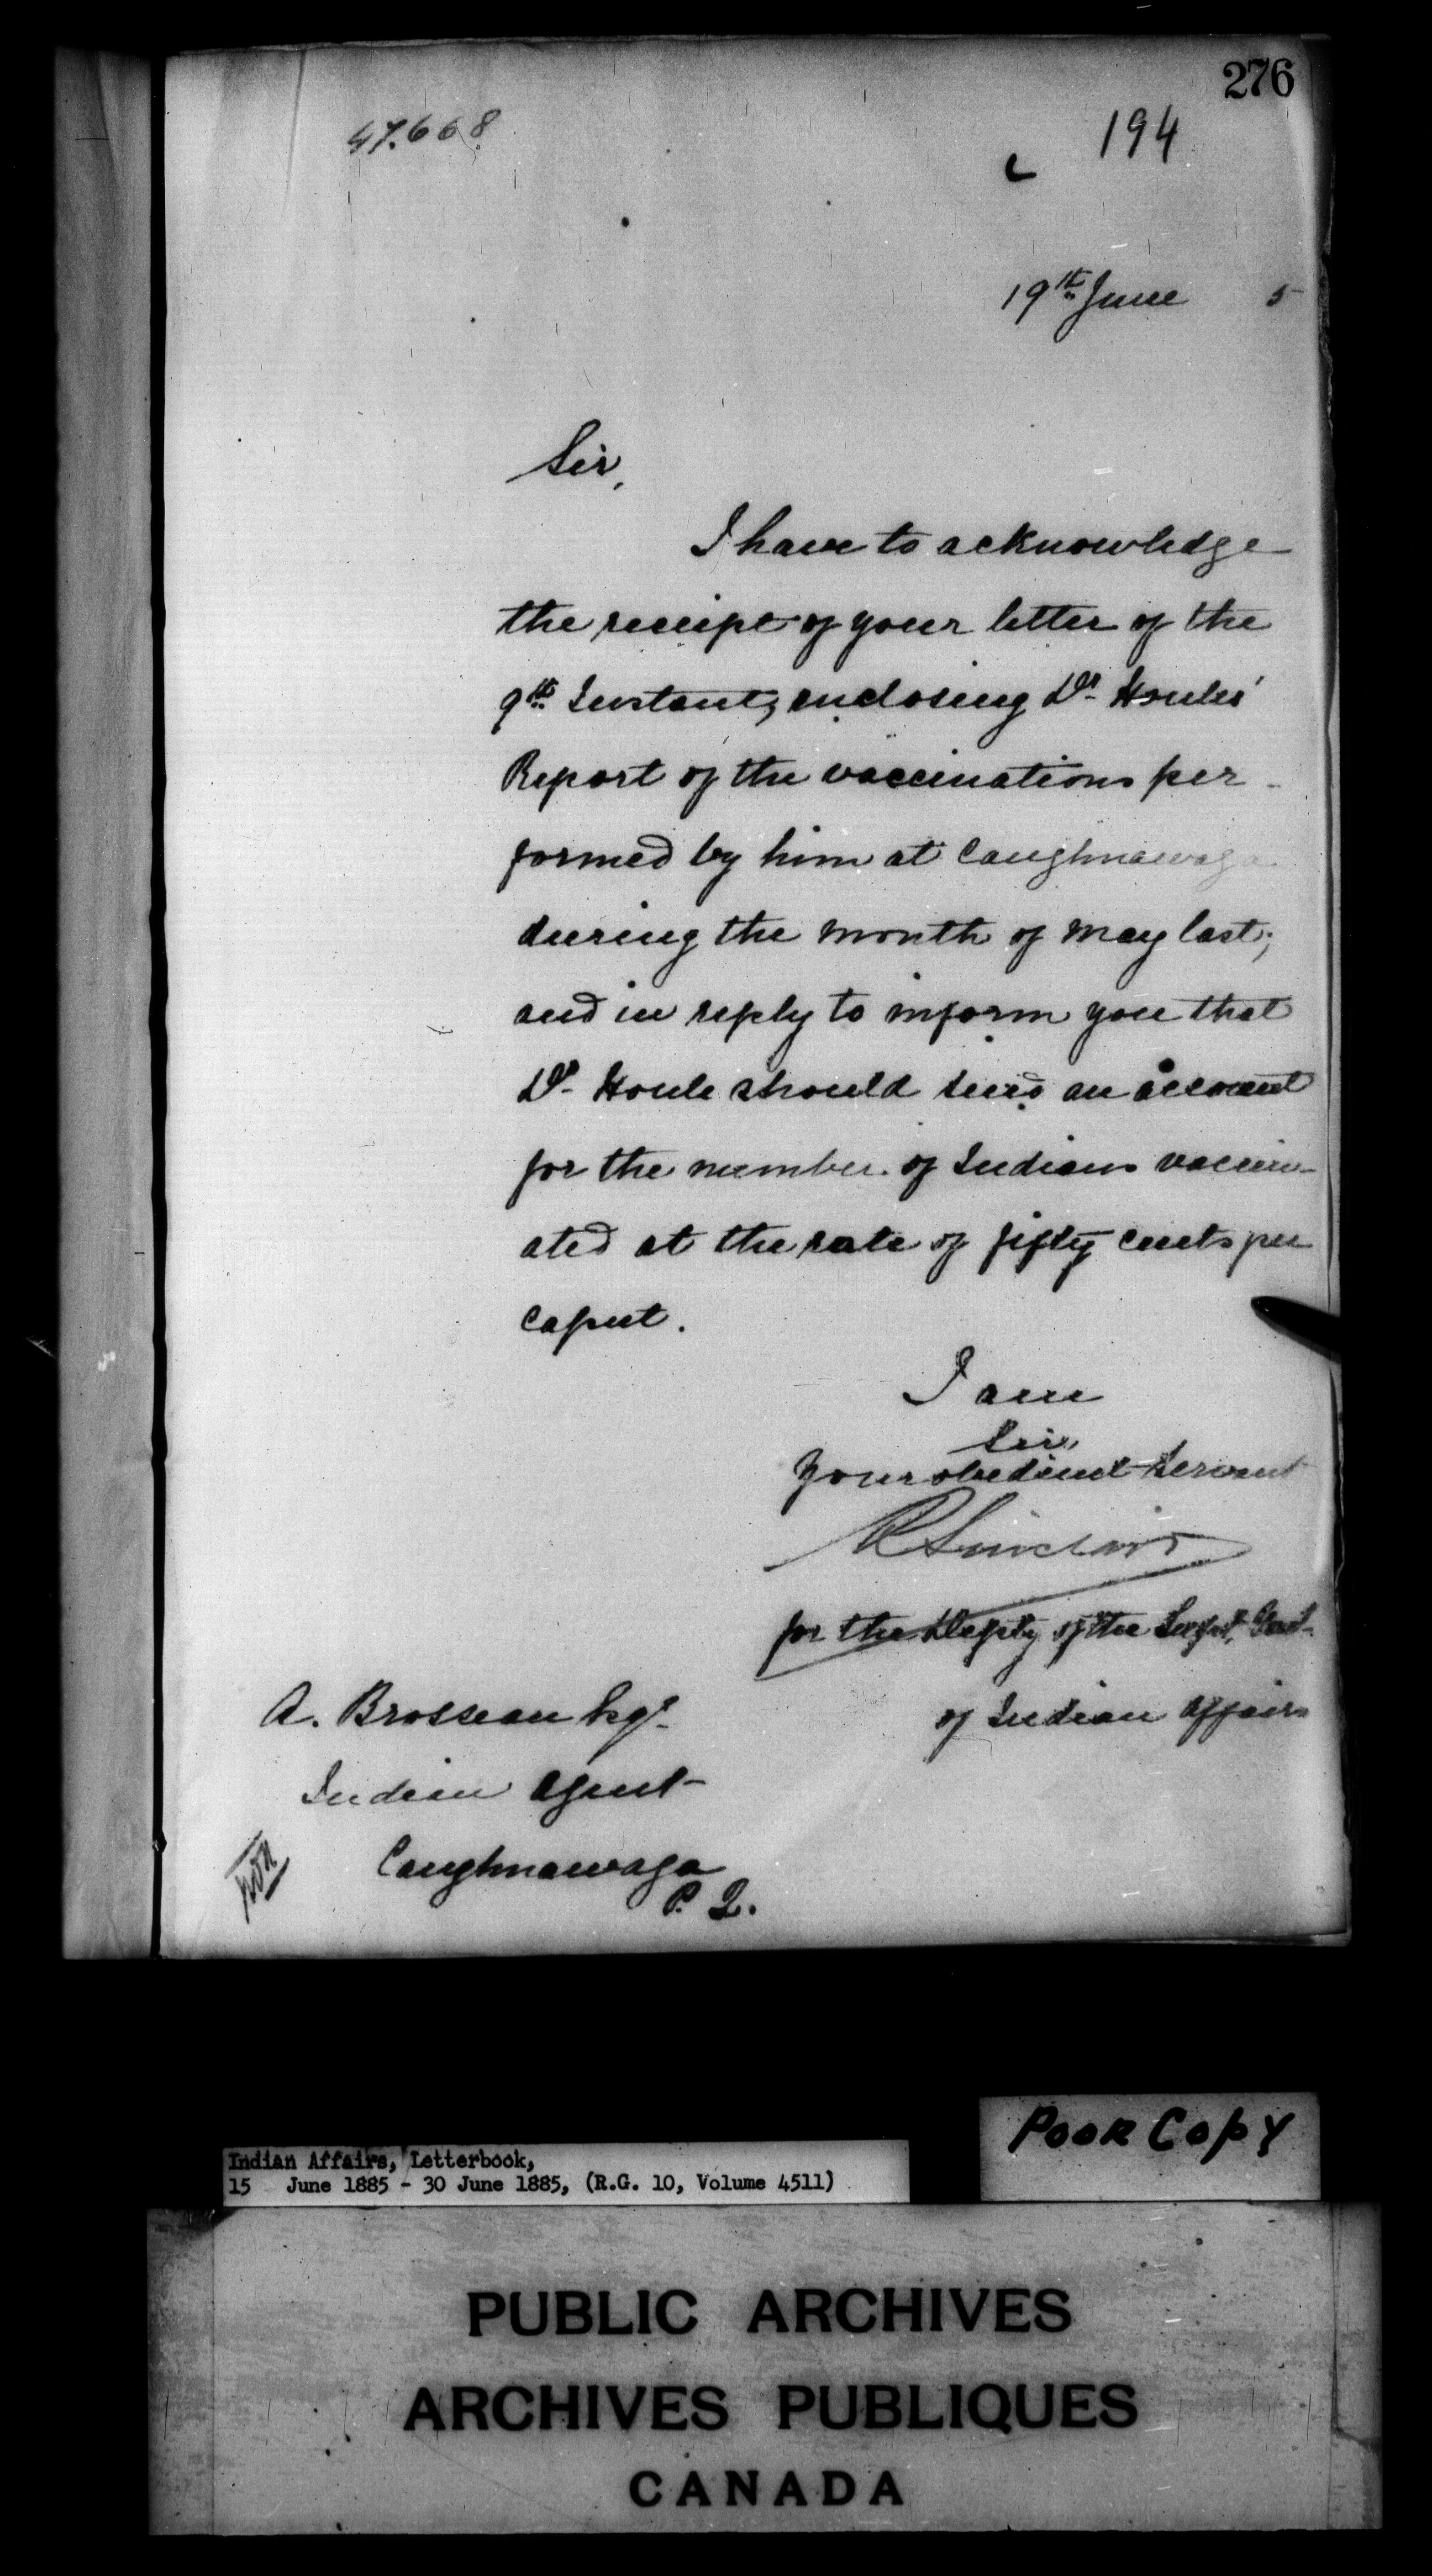 276
47.668.
194
19th June 5
Sir,
I have to acknowledge
the receipt of your letter of the
9th Instant, enclosing Dr Houles'
Report of the vaccinations per-
formed by him at Caughnawaga
during the month of May last;
and in reply to inform you that
Dr Houle should send an account
for the number of Indians vaccin-
ated at the rate of fifty cents per
caput.
I am
Sir,
Your obedient Servant
R Sinclair
for the Depty of the Supt. Genl.
of Indian Affairs
A. Brosseau Esqr.
Indian Agent
Caughnawaga
P. Q.
Poor Copy
Indian Affairs, Letterbook,
15 June 1885 - 30 June 1885, (R.G. 10, Volume 4511)
PUBLIC ARCHIVES
ARCHIVES PUBLIQUES
CANADA